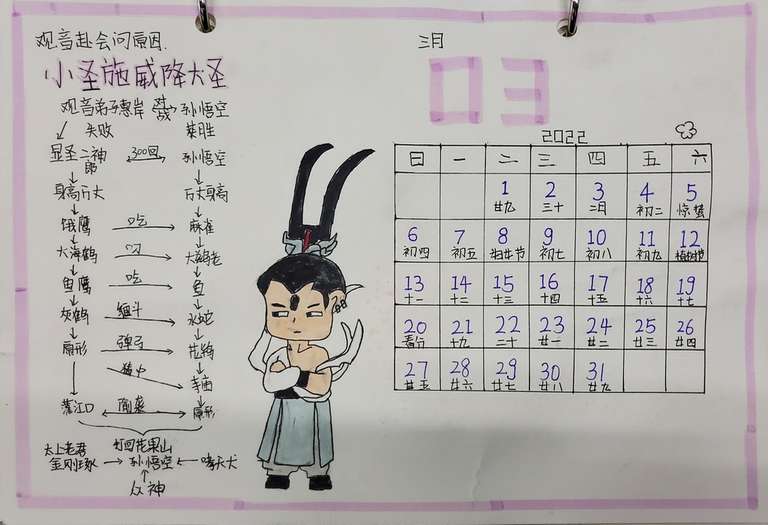 观音赴会问原因.
小圣施威降大圣
观音弟子惠岸 对战 孙悟空
失败 获胜
显圣二郎神 300回 孙悟空
身高万丈 万丈身高
饿鹰 吃 麻雀
大海鹤 叼 大鹚老
鱼鹰 吃 鱼
灰鹤 水蛇
原形 弹弓 花鸨
寺庙
灌江口 原形
打回花果山
太上老君 金刚琢 孙悟空 哮天犬
众神
三月
03
2022
日 一 二 三 四 五 六
1 2 3 4 5
廿九 三十 二月 初二 惊蛰
6 7 8 9 10 11 12
初四 初五 妇女节 初七 初八 初九 植树节
13 14 15 16 17 18 19
十一 十二 十三 十四 十五 十六 十七
20 21 22 23 24 25 26
春分 十九 二十 廿一 廿二 廿三 廿四
27 28 29 30 31
廿五 廿六 廿七 廿八 廿九